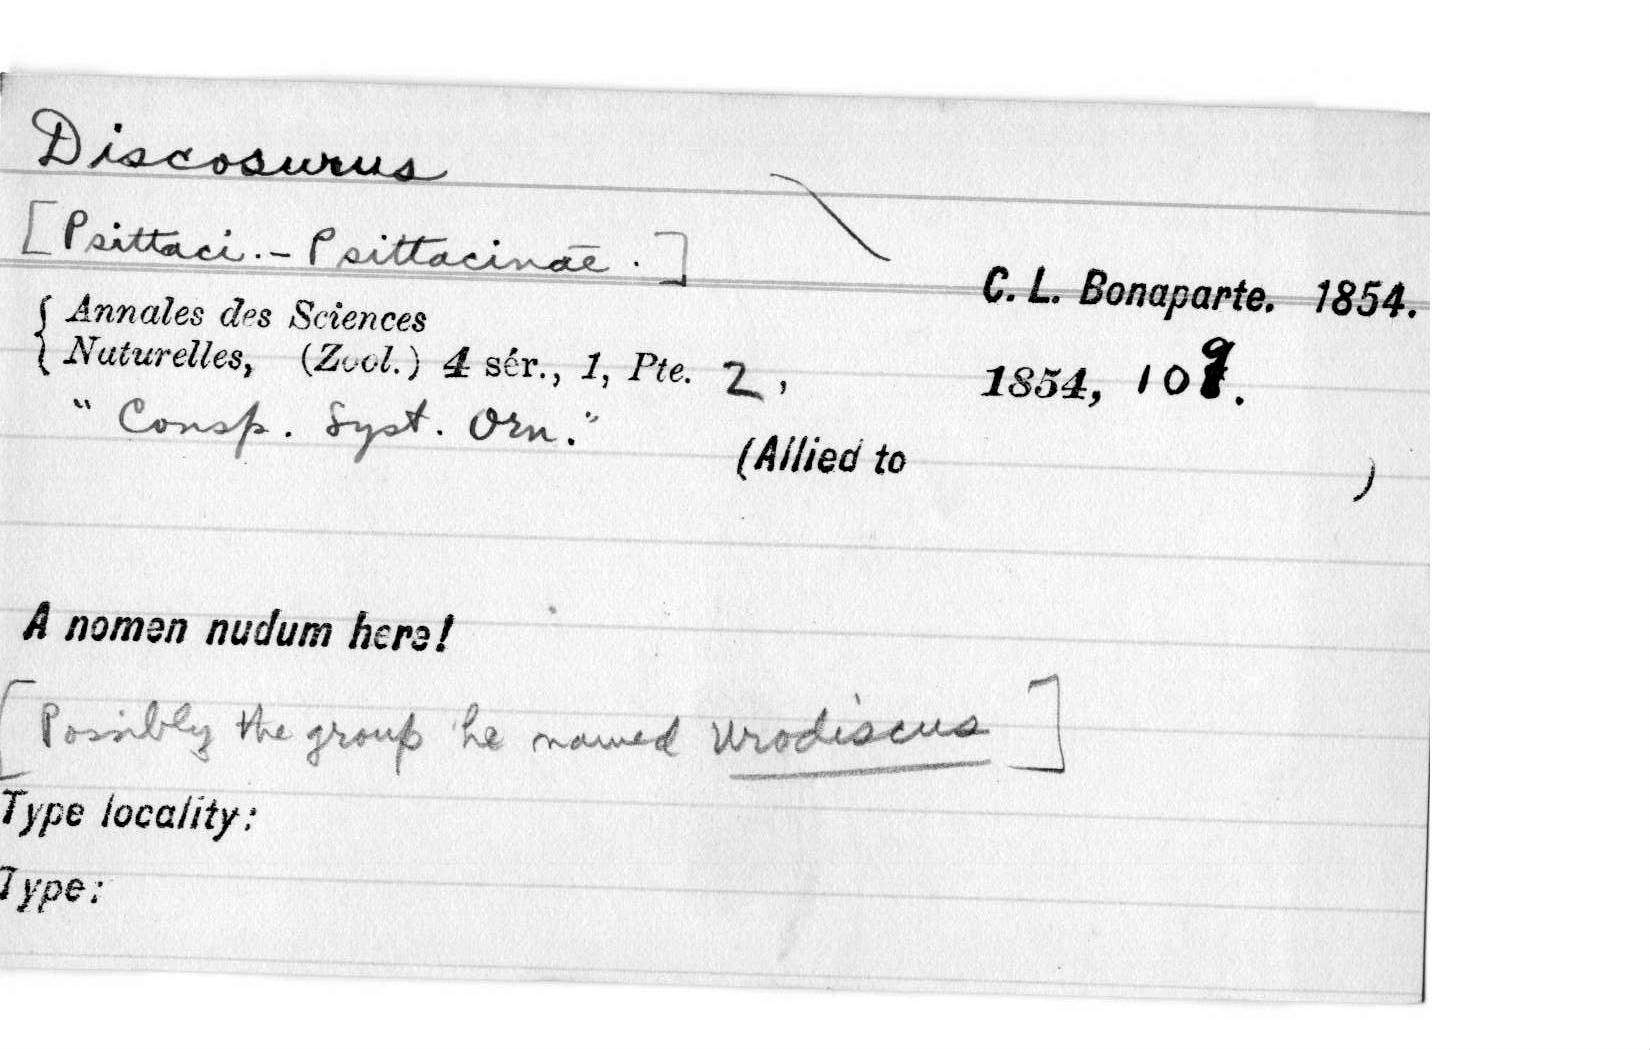 Discosurus
[Psittaci. - Psittacinae.]
C. L. Bonaparte. 1854.
{ Annales des Sciences
Naturelles, (Zool.) 4 sér., 1, Pte. 2, 1854, 109.
"Consp. Syst. Orn."
(Allied to )
A nomen nudum here!
[Possibly the group he named Urodiscus]
Type locality:
Type: